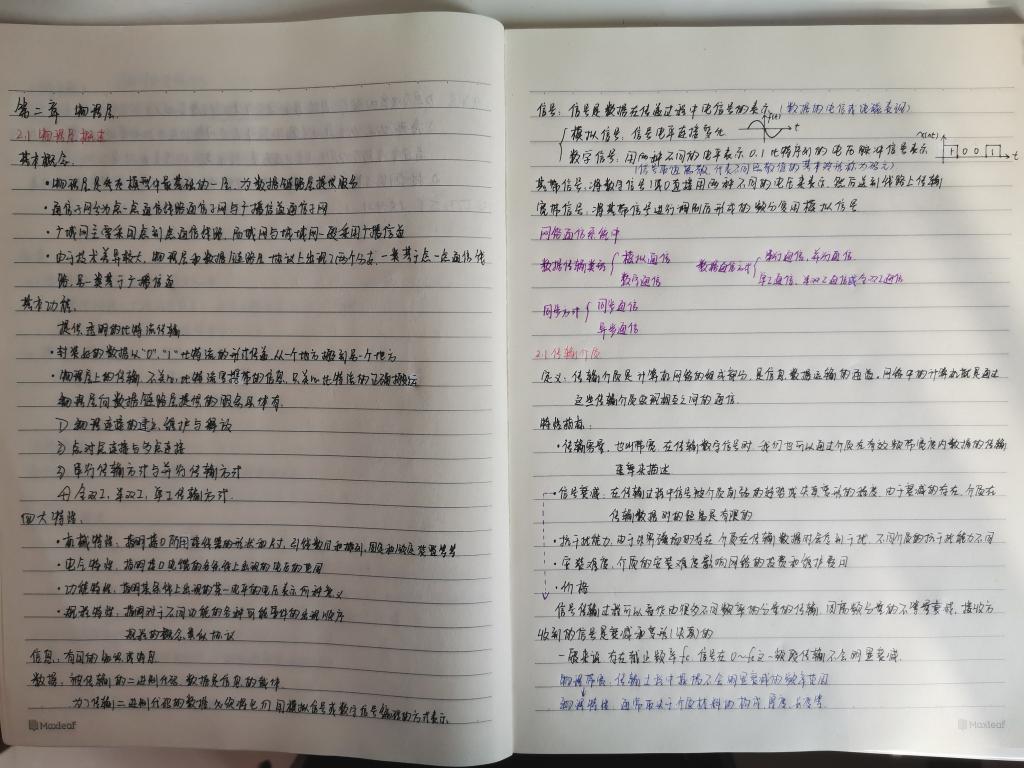 第二章 物理层
2.1 物理层概述
基本概念
·物理层是参考模型中最基础的一层, 为数据链路层提供服务
·通信子网分为点-点通信线路通信子网与广播信道通信子网
·广域网主要采用点到点通信线路, 局域网与城域网一般采用广播信道
·由于技术差异较大, 物理层和数据链路层协议上出现了两个分支, 一类基于点-点通信线
路, 另一类基于广播信道
基本功能:
提供透明的比特流传输
·封装好的数据以"0"、"1"比特流的形式传差, 从一个地方搬到另一个地方
·物理层上的传输, 不关心比特流里携带的信息, 只关心比特流的正确搬运
物理层向数据链路层提供的服务具体有
1) 物理连接的建立、维护与释放
2) 点对点连接与多点连接
3) 串行传输方式与并行传输方式
4) 全双工、半双工、单工传输方式.
四大特性:
·机械特性: 指明接口所用接线器的形状和尺寸、引线数目和排列、固定和锁定装置等等
·电气特性: 指明接口电缆的各条线上出现的电压的范围
·功能特性: 指明某条线上出现的某一电平的电压表示何种意义
·规程特性: 指明对于不同功能的各种可能事件的出现顺序
规程的概念类似协议
信息: 有用的知识或消息
数据: 被传输的二进制代码, 数据是信息的载体.
为了传输二进制代码的数据, 必须将它们用模拟信号或数字信号编码的方式表示.
Maxleaf
信号: 信号是数据在传递过程中电信号的表示 (数据的电信或电磁表现)
模拟信号: 信号电平连续变化 f(t) t
数字信号: 用两种不同的电平表示 0、1 比特序列的电压脉冲信号表示 1 0 0 1 t
基带信号: 将数字信号1或0直接用两种不同的电压来表示, 然后送到线路上传输
宽带信号: 将基带信号进行调制后形成的频分复用模拟信号
网络通信系统中
数据传输类型 模拟通信 数据通信方式 串行通信、并行通信
数字通信 单工通信、半双工通信或全双工通信
同步方式 同步通信
异步通信
2.1 传输介质
定义: 传输介质是计算机网络的组成部分, 是信息、数据运输的通道。网络中的计算机就是通过
这些传输介质实现相互之间的通信.
特性指标:
·传输容量: 也叫带宽, 在传输数字信号时, 我们也可以通过介质在有效频带宽度内数据的传输
速率来描述
·信号衰减: 在传输过程中信号被介质削弱的趋势或失真变形的程度, 由于衰减的存在, 介质在
传输数据时的距离是有限的
·抗干扰能力: 由于外界的存在, 介质在传输数据时会受到干扰, 不同介质的抗干扰能力不同
·安装难度: 介质的安装难度影响网络的花费和维护费用
·价格
信号传输过程可以看作由很多不同频率的分量的传输, 因高频分量的不等量衰减, 接收方
收到的信号是衰减和变形(失真)的
一般来说, 存在截止频率fc, 信号在0~fc这一频段传输不会明显衰减.
物理带宽: 传输过程中振幅不会明显衰减的频率范围
物理特性, 通常取决于介质材料的构成、厚度、长度等
Maxleaf